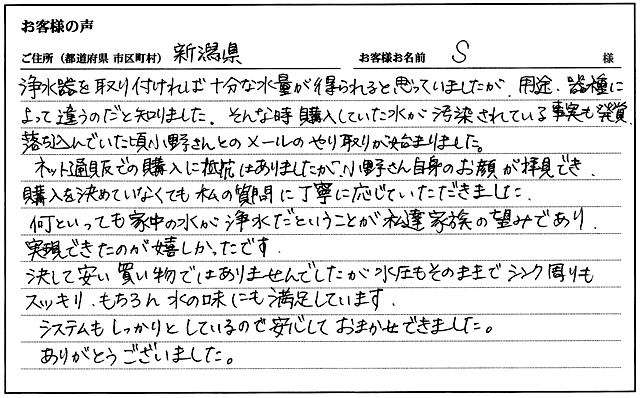 お客様の声
ご住所（都道府県 市区町村） 新潟県 お客様お名前 S 様
浄水器を取り付ければ十分な水量が得られると思っていましたが、用途、器種に
よって違うのだと知りました。そんな時購入していた水が汚染されている事実も発覚
落ち込んでいた頃小野さんとのメールのやり取りが始まりました。
ネット通販での購入に抵抗はありましたが、小野さん自身のお顔が拝見でき、
購入を決めていなくても私の質問に丁寧に応じていただきました。
何といっても家中の水が浄水だということが私達家族の望みであり、
実現できたのが嬉しかったです。
決して安い買い物ではありませんでしたが水圧もそのままでシンク周りも
スッキリ、もちろん水の味にも満足しています。
システムもしっかりとしているので安心しておまかせできました。
ありがとうございました。